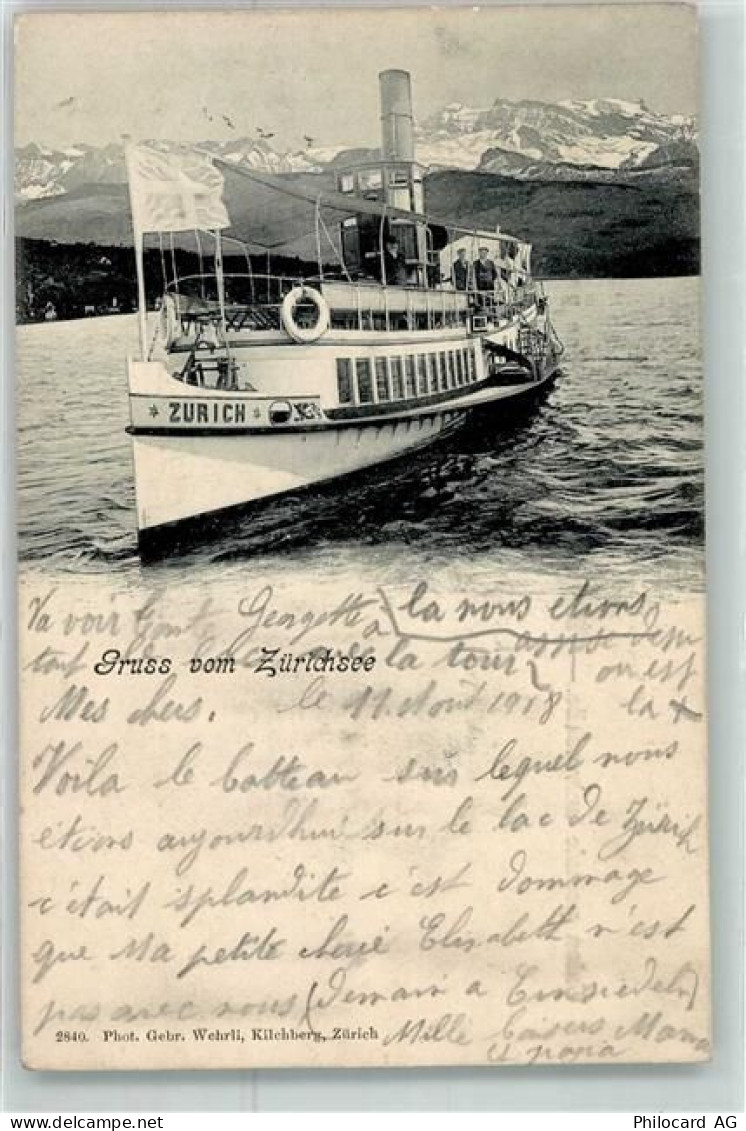 ZURICH
la nous etions
Va voir Georgette
assise
ou est
la x
tout avec la tour
Gruss vom Zürichsee
Mes chers. le 11 Aout 1918
Voila le batteau sur lequel nous
étions aujourdhui sur le lac de Zürich
c'était splandite c'est dommage
que Ma petite cherie Elisabeth n'est
pas avec nous (Demain a Einsiedeln)
2840. Phot. Gebr. Wehrli, Kilchberg, Zürich
Mille baisers Maman
et papa
Philocard AG